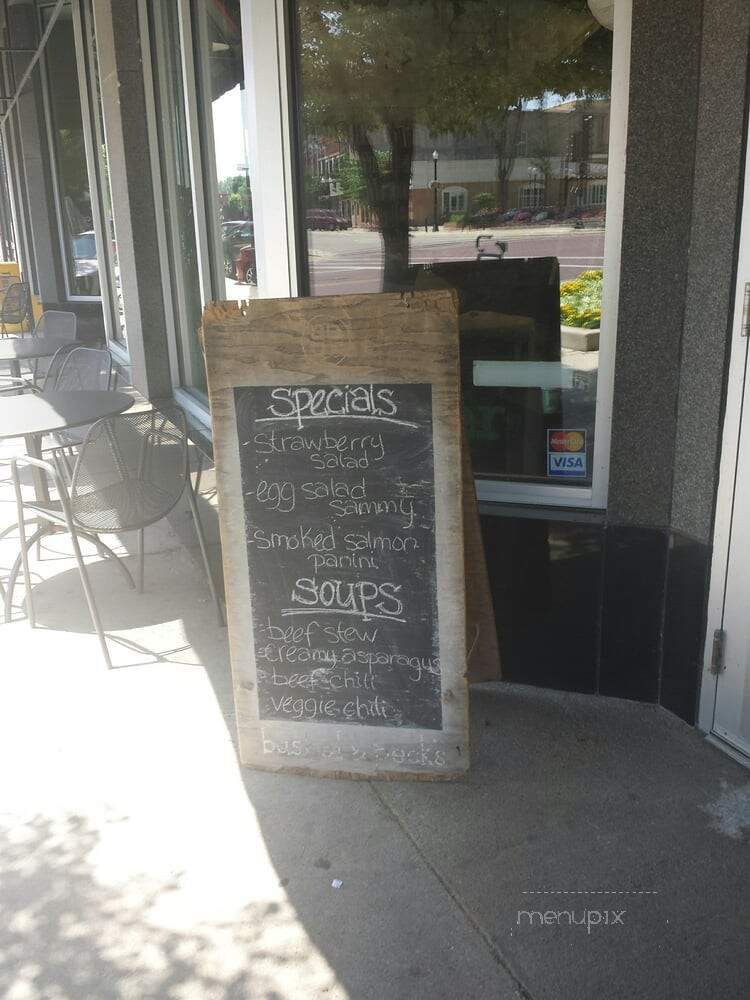 Specials
-Strawberry
salad
-egg salad
sammy
-smoked salmon
panini
Soups
-beef stew
-creamy asparagus
-beef chili
-veggie chili
MasterCard
VISA
menupix